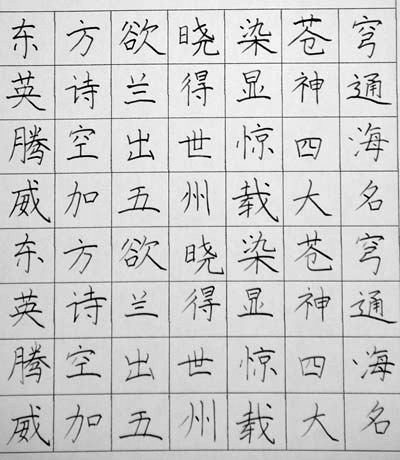 东方欲晓染苍穹
英诗兰得显神通
腾空出世惊四海
威加五州载大名
东方欲晓染苍穹
英诗兰得显神通
腾空出世惊四海
威加五州载大名